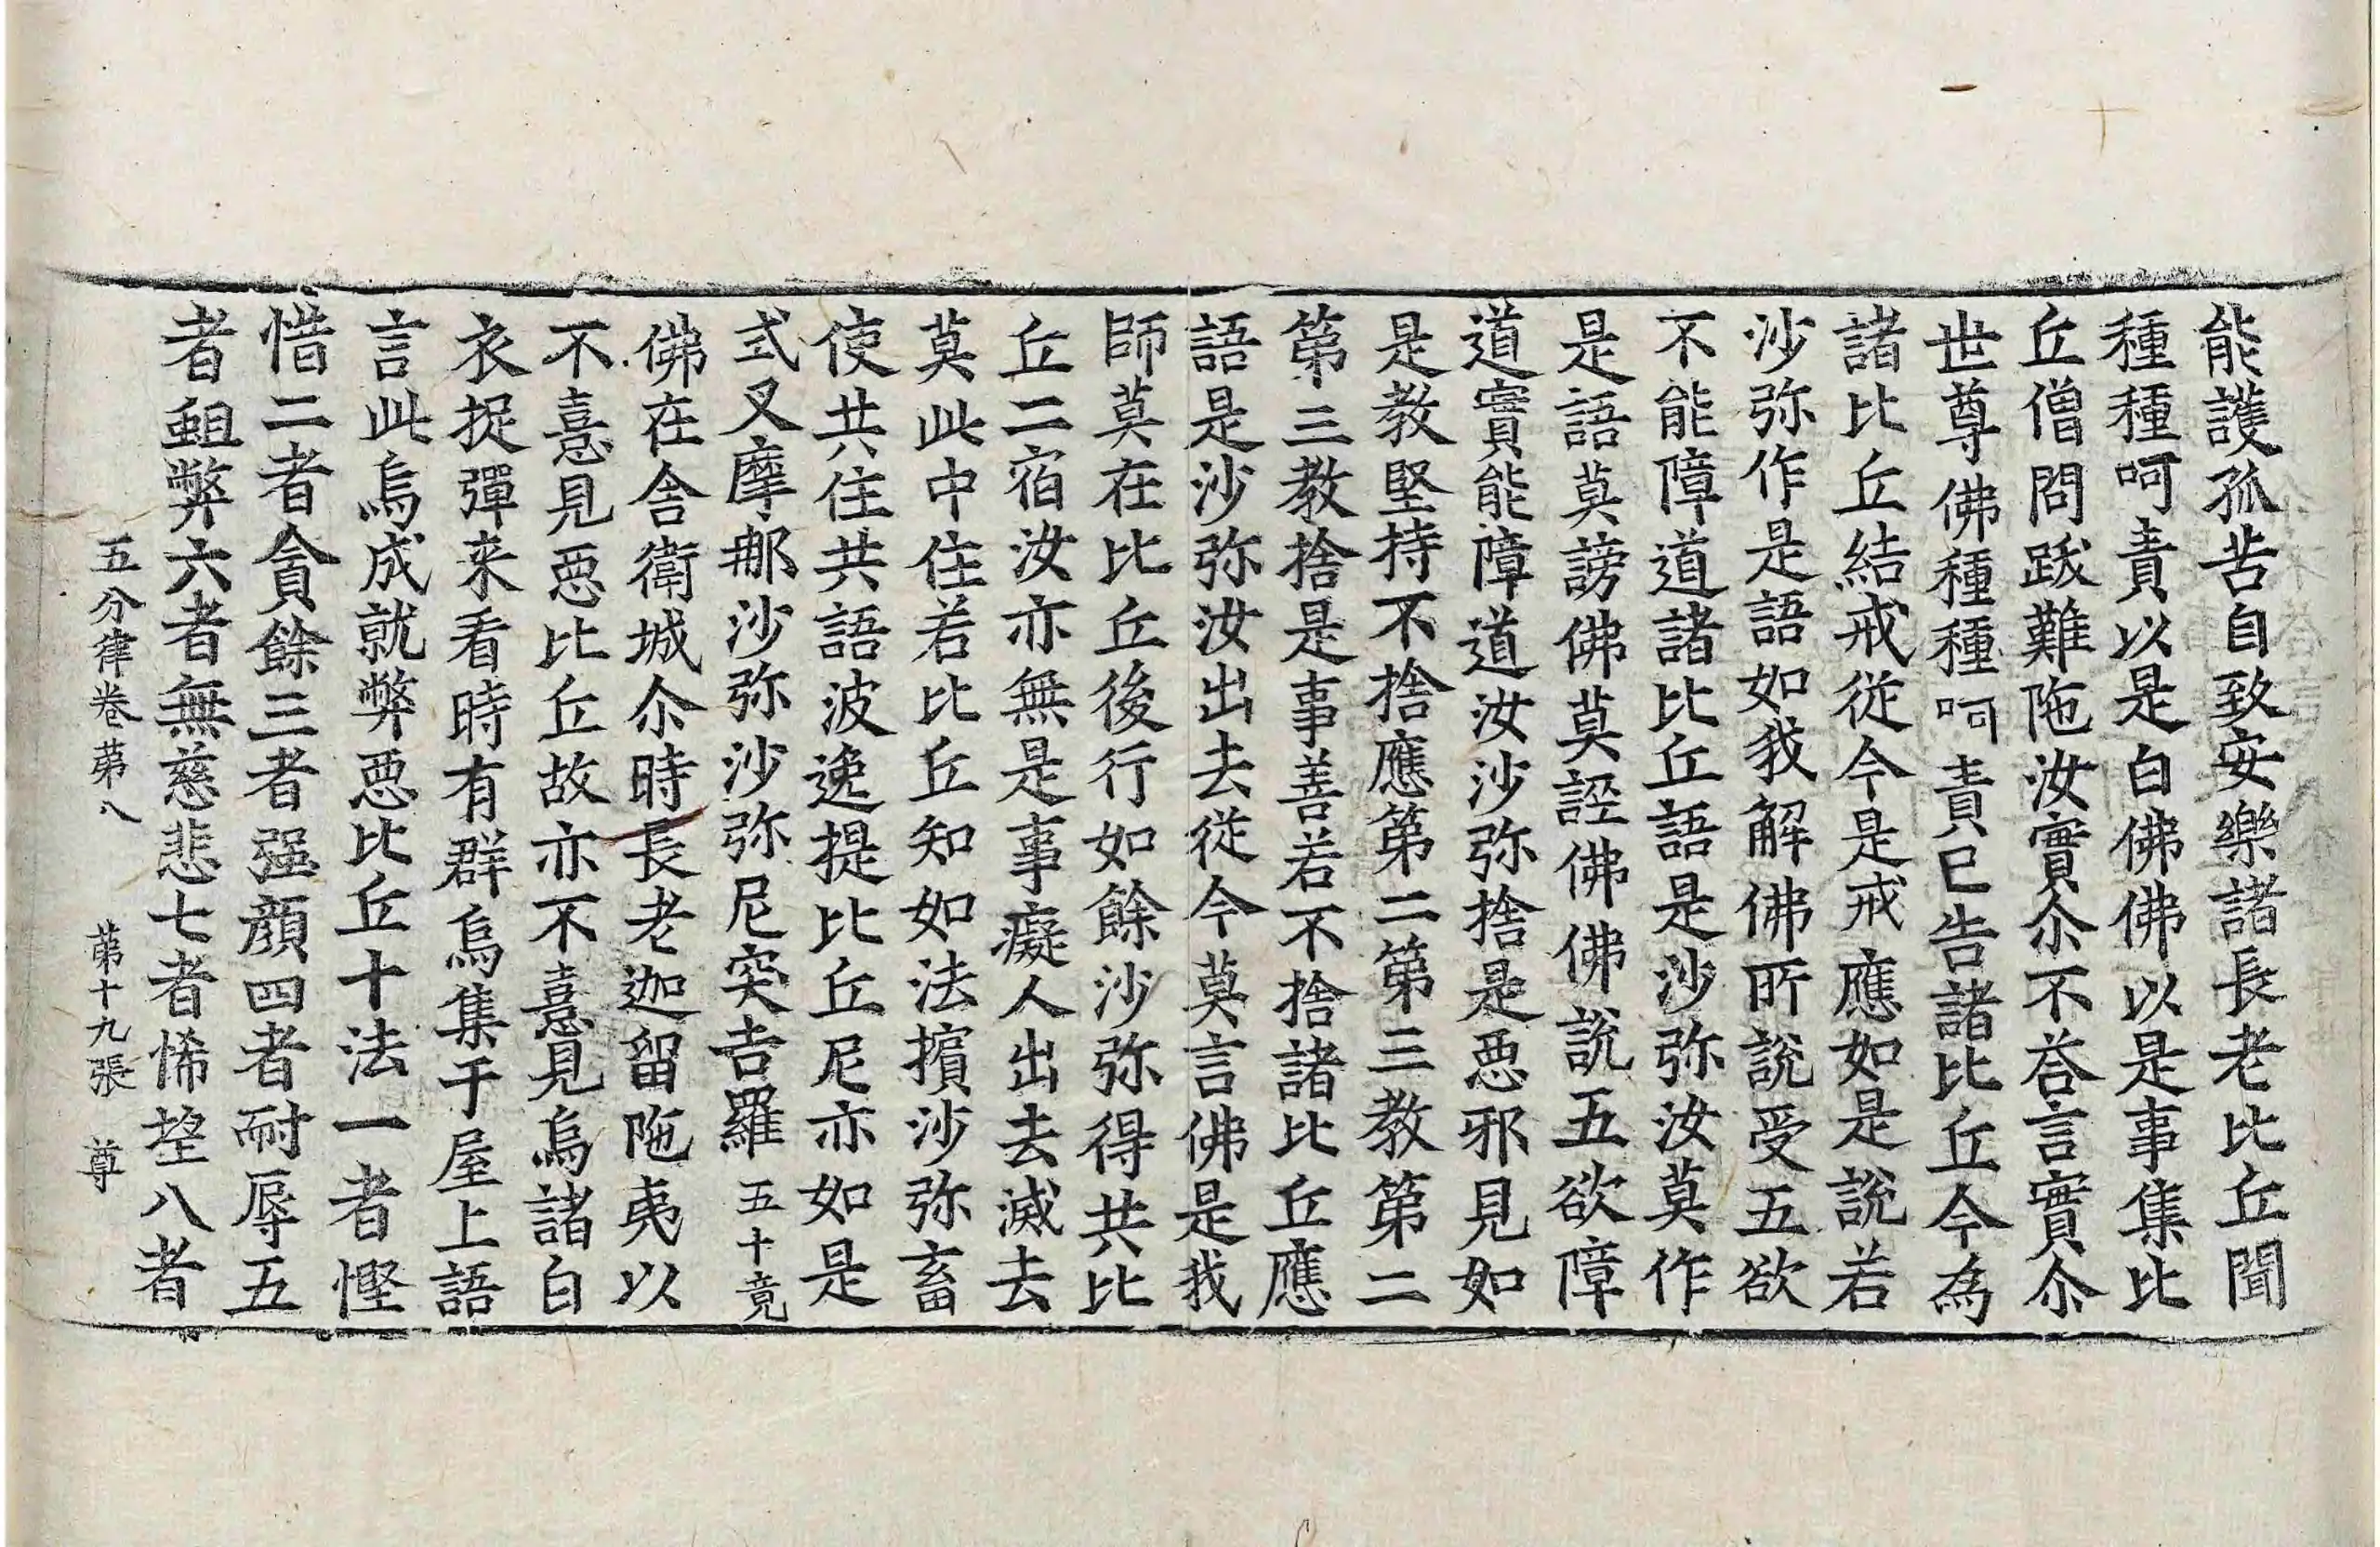 能護孤苦自致安樂諸長老比丘聞
種種呵責以是白佛佛以是事集比
丘僧問跋難陁汝實尒不荅言實尒
世尊佛種種呵責已告諸比丘今為
諸比丘結戒從今是戒應如是說若
沙弥作是語如我解佛所說受五欲
不能障道諸比丘語是沙弥汝莫作
是語莫謗佛莫誣佛佛說五欲障
道實能障道汝沙弥捨是惡邪見如
是教堅持不捨應第二第三教第二
第三教捨是事善若不捨諸比丘應
語是沙弥汝出去從今莫言佛是我
師莫在比丘後行如餘沙弥得共比
丘二宿汝亦無是事癡人出去滅去
莫此中住若比丘知如法擯沙弥畜
使共住共語波逸提比丘尼亦如是
式叉摩那沙弥沙弥尼突吉羅 五十竟
佛在舍衛城尒時長老迦留陁夷以
不憙見惡比丘故亦不憙見烏諸白
衣捉彈来看時有群烏集于屋上語
言此烏成就弊惡比丘十法一者慳
惜二者貪餘三者强顏四者耐辱五
者蛆弊六者無慈悲七者悕望八者
五分律卷第八 第十九張 尊